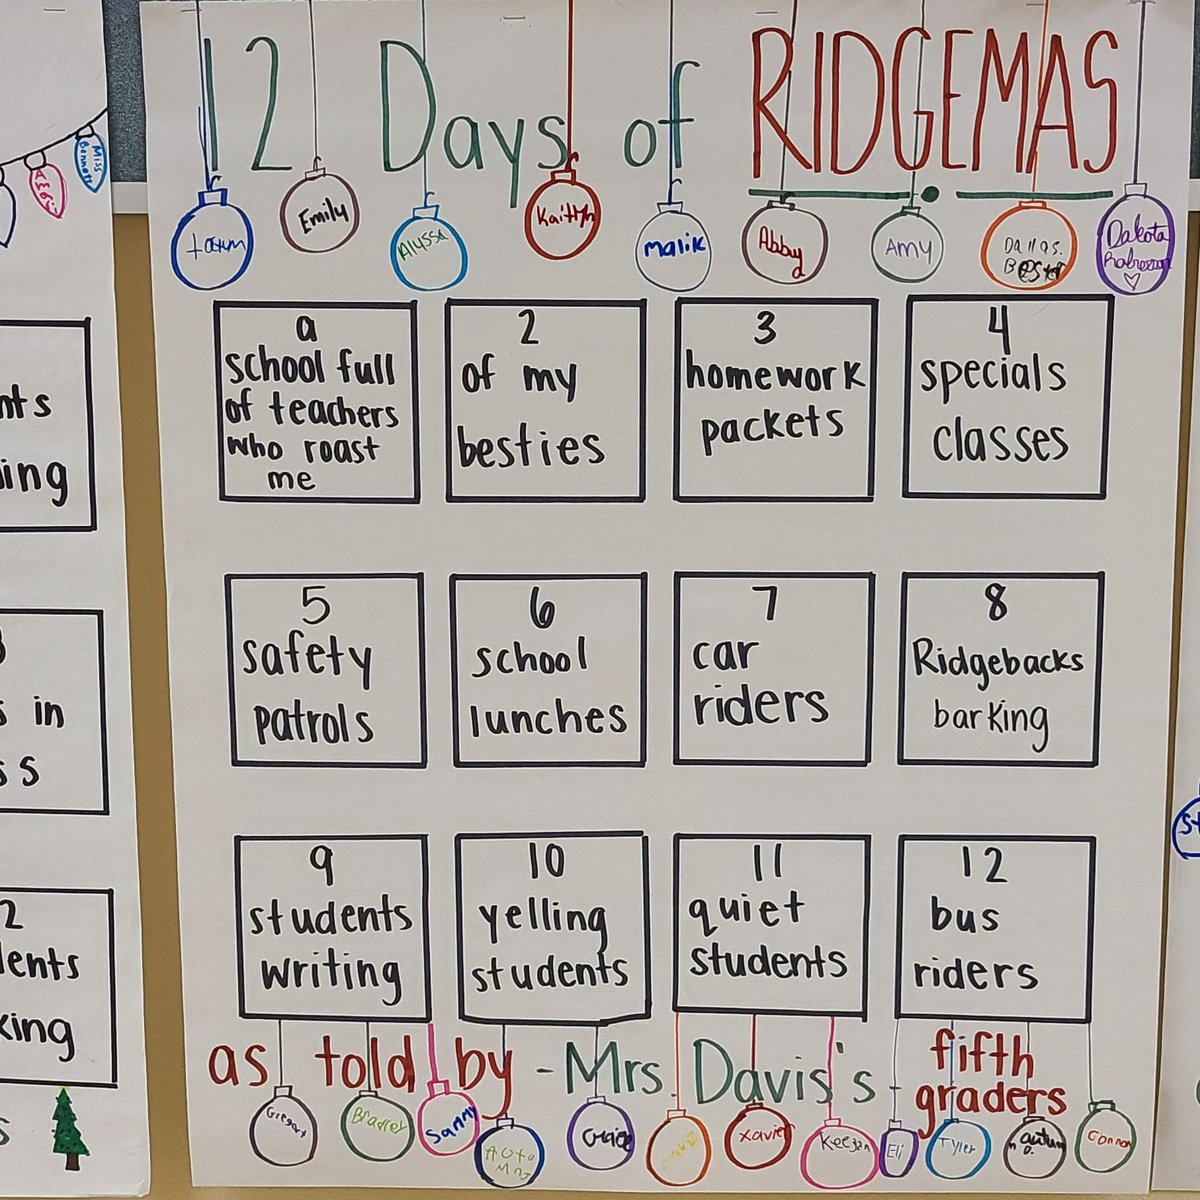 12 Days of RIDGEMAS
Miss
Bennett
Tatum
Emily
Alyssa
Kaitlyn
Malik
Abby
Amy
Dallas.
Dakota
a
school full
of teachers
who roast
me
2
of my
besties
3
homework
packets
4
specials
classes
nts
ing
5
safety
patrols
6
school
lunches
7
car
riders
8
Ridgebacks
barking
s in
ss
9
students
writing
10
yelling
students
11
quiet
students
12
bus
riders
2
lents
king
as told by - Mrs. Davis's - fifth
graders
Gregory
Bradley
Sammy
Xavier
Keegan
Eli
Tyler
autumn
D.
Connor
s
St